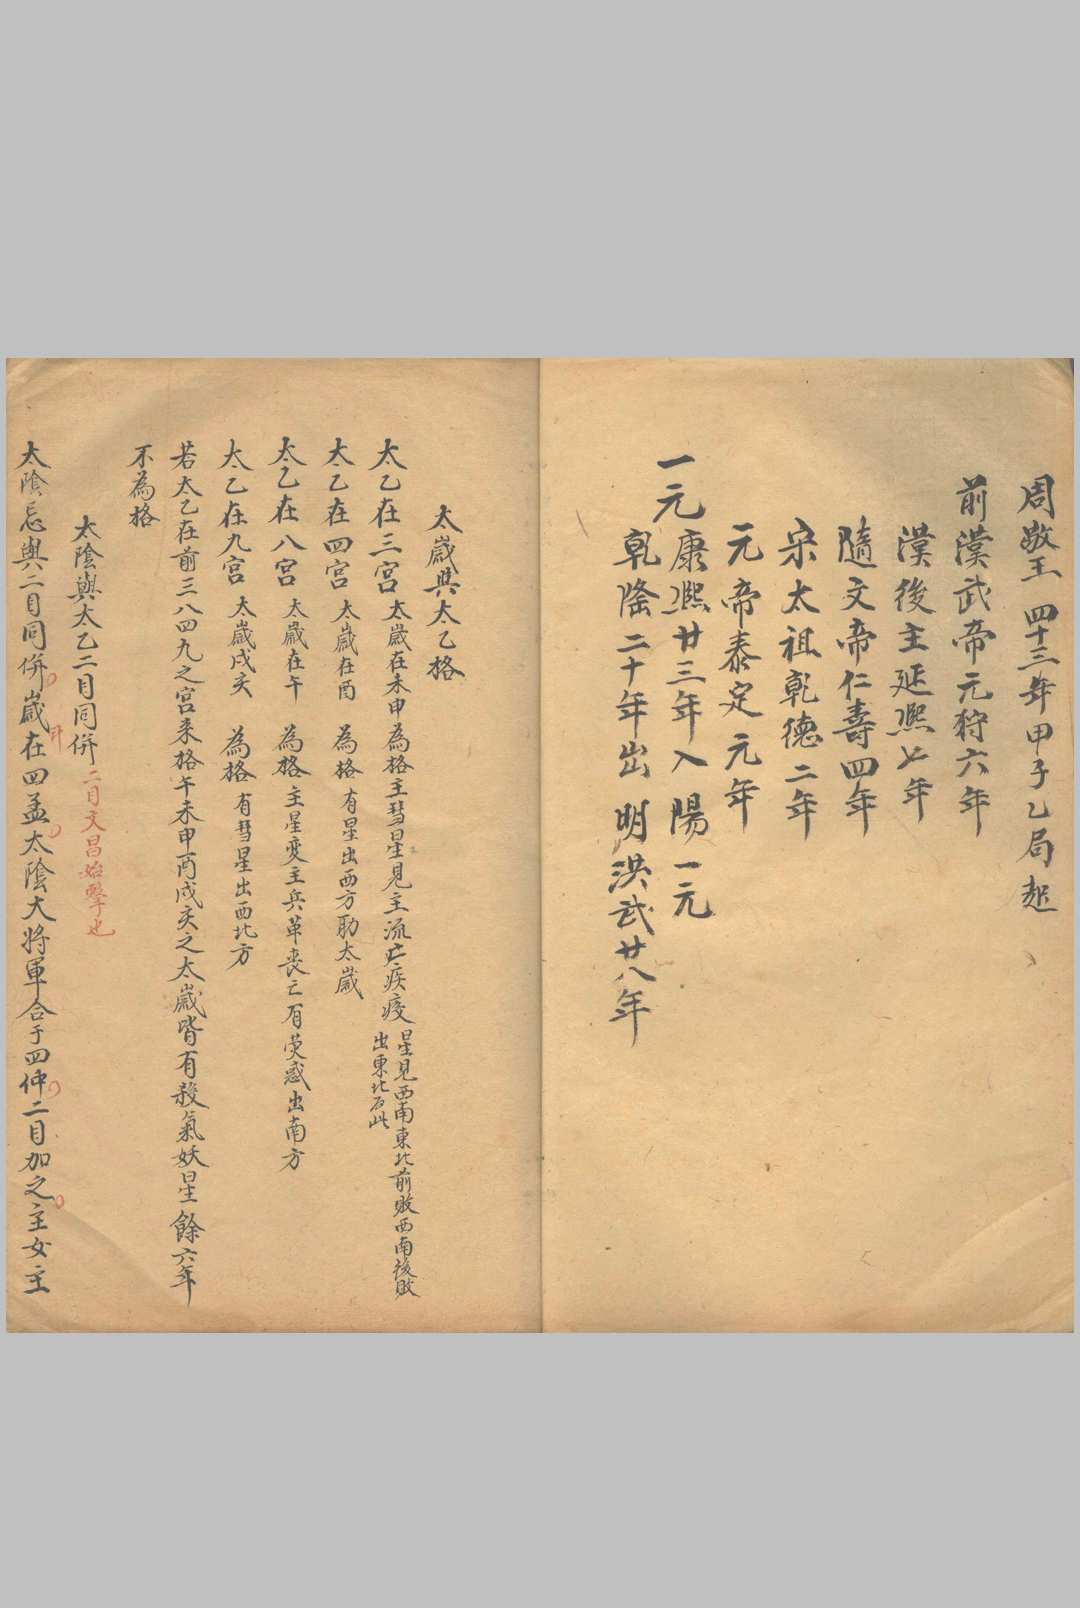 周敬王四十三年甲子乙局起
前漢武帝元狩六年
漢後主延熙七年
隨文帝仁壽四年
宋太祖乾德二年
元帝泰定元年
一元康熙廿三年入陽一元
乾隆二十年出明洪武廿八年
太歲與太乙格
太乙在三宮太歲在未申為格主彗星見主流亡疾疫星見西南東北前敗西南後敗
出東北后此
太乙在四宮太歲在酉為格有星出西方助太歲
太乙在八宮太歲在午為格主星变主兵革丧亡有荧惑出南方
太乙在九宮太歲戌亥為格有彗星出西北方
若太乙在前三八四九之宮来格午未申酉戌亥之太歲皆有殺氣妖星餘六年
不為格
太陰與太乙二目同併二目文昌始擊也
太陰忌與二目同併歲在四孟太陰大將軍合于四仲二目加之主女主